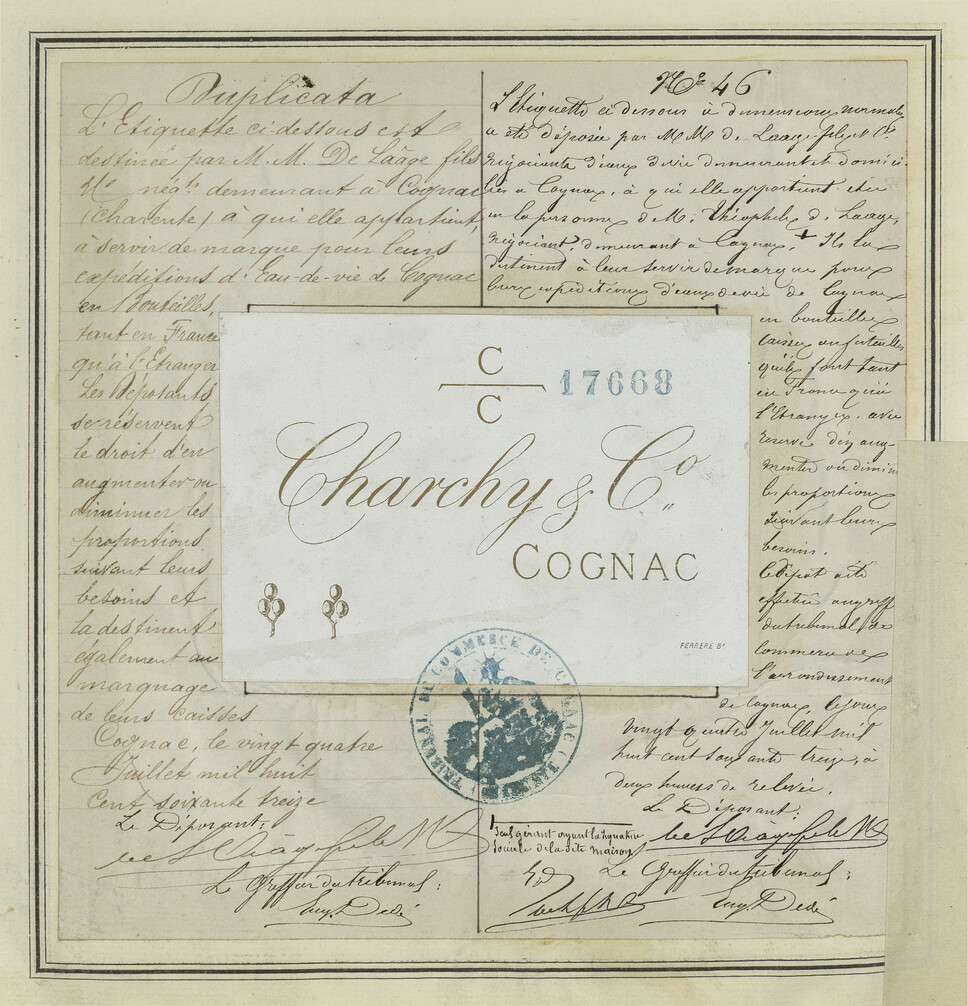 Duplicata
L'Etiquette ci-dessous est
destinée par M. M. De Laâge fils
& Cie négts demeurant à Cognac
(Charente) à qui elle appartient,
à servir de marque pour leurs
expéditions d'Eau-de-vie de Cognac
en Bouteilles,
tant en France
qu'à l'Etranger
Les Déposants
se réservent
le droit d'en
augmenter ou
diminuer les
proportions
suivant leurs
besoins et
la destinent
également au
marquage
de leurs caisses
Cognac, le vingt quatre
Juillet mil huit
cent soixante treize
Le Déposant:
Le Greffier du tribunal:
Eug. Dedé
No 46
L'Etiquette ci dessous à dimensions normales
a été déposée par MM de Laage fils et Cie
négociants d'eaux de vie demeurant et domici-
liés à Cognac, à qui elle appartient et ce
en la personne de M. Théophile de Laage,
négociant, demeurant à Cognac. Ils la
destinent à leur servir de marque pour
leurs expéditions d'eaux de vie de Cognac
en bouteilles
caisses ou futailles
qu'ils font tant
en France qu'à
l'Etranger, avec
réserve d'en aug-
menter ou dimin
les proportions
suivant leurs
besoins.
Le dépôt a été
effectué au greffe
du tribunal de
commerce de
l'arrondissement
de Cognac, le jour
vingt quatre Juillet mil
huit cent soixante treize, à
deux heures de relevée.
Le Déposant:
seul gérant ayant la signature
sociale de la dite maison
Le Greffier du tribunal:
Eug. Dedé
C
C
17668
Charchy & Co.
COGNAC
FERRERE Bx
TRIBUNAL DE COMMERCE DE COGNAC